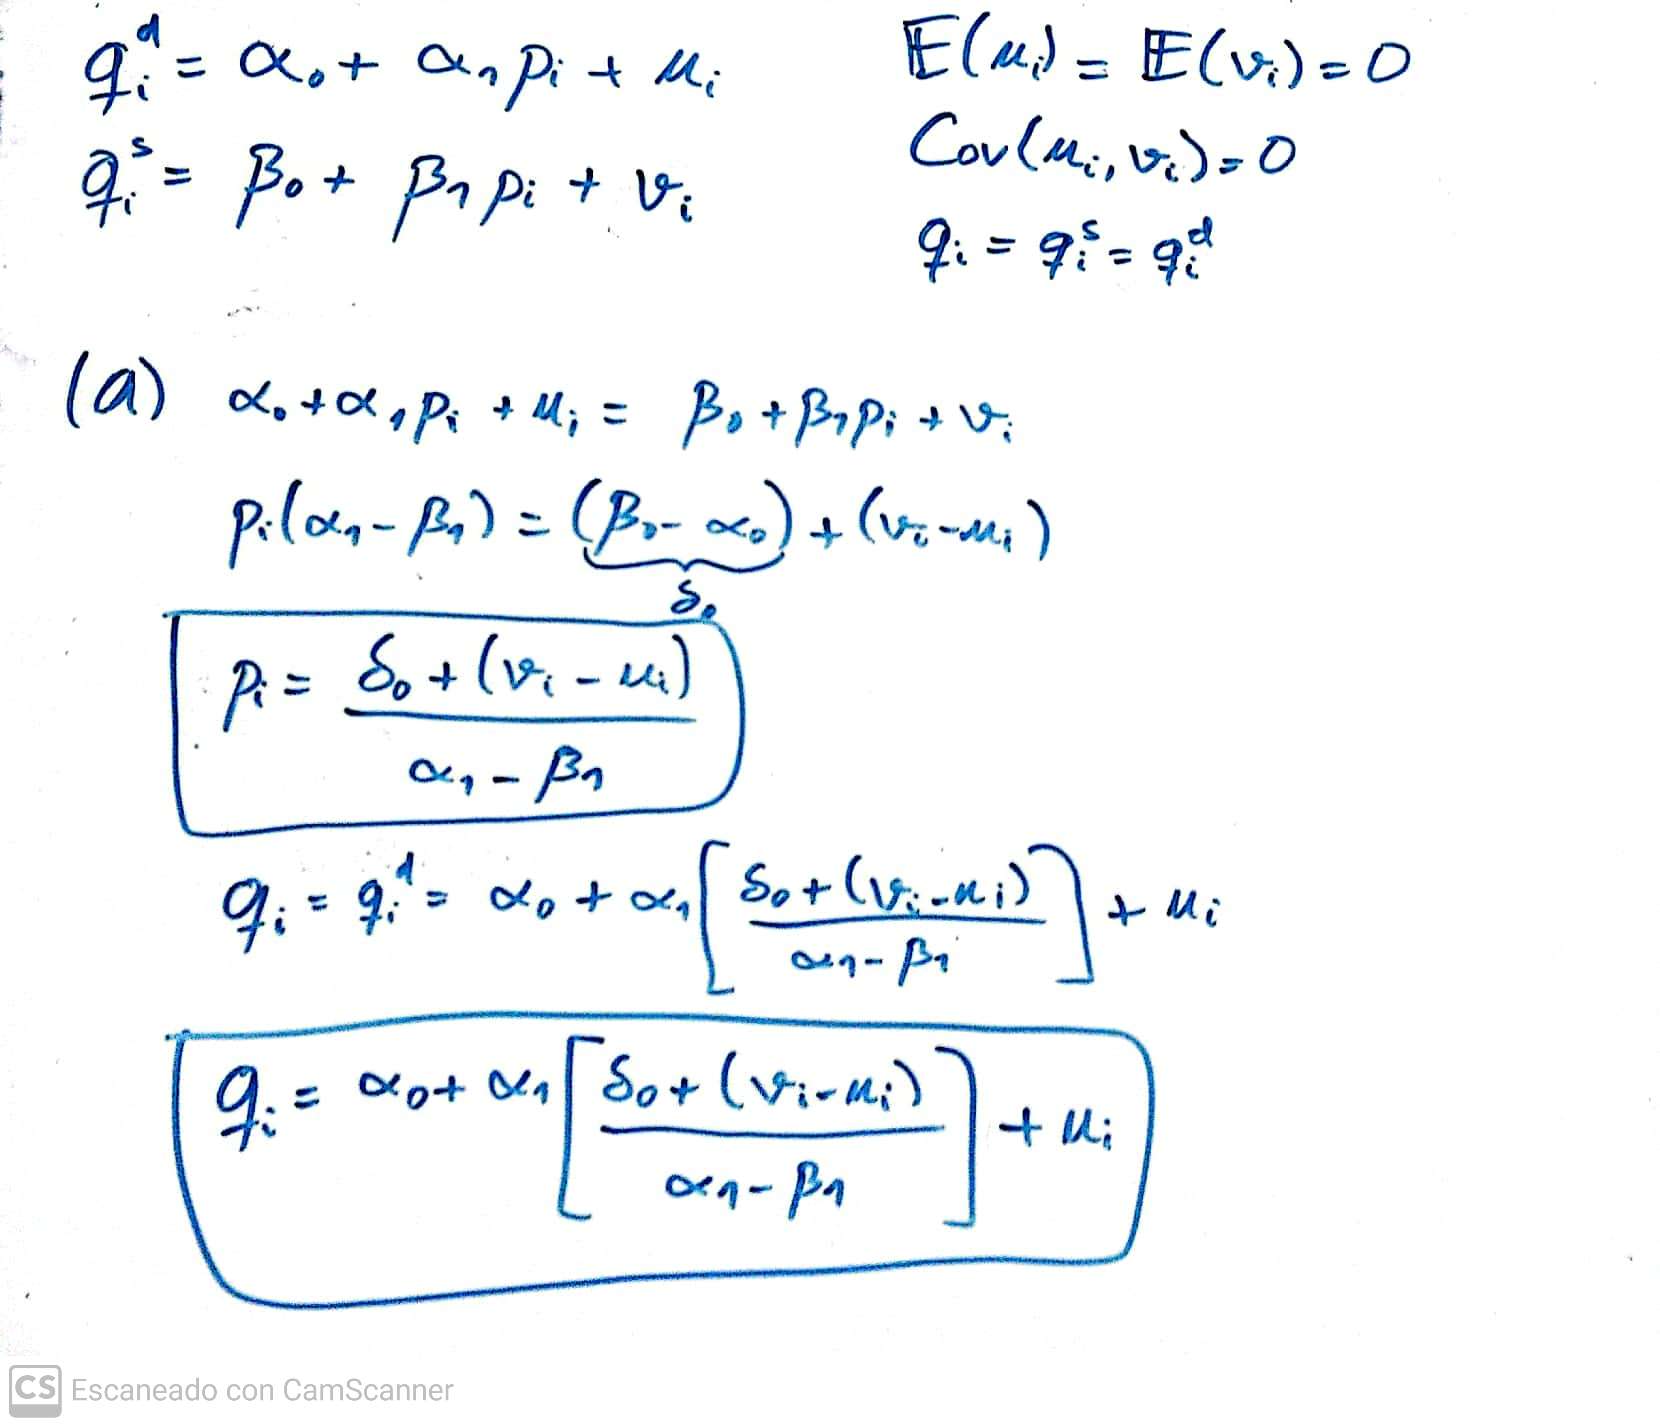 qᵢᵈ = α₀ + α₁pᵢ + uᵢ
𝔼(uᵢ) = 𝔼(vᵢ) = 0
qᵢˢ = β₀ + β₁pᵢ + vᵢ
Cov(uᵢ, vᵢ) = 0
qᵢ = qᵢˢ = qᵢᵈ
(a) α₀ + α₁pᵢ + uᵢ = β₀ + β₁pᵢ + vᵢ
pᵢ(α₁ - β₁) = (β₀ - α₀) + (vᵢ - uᵢ)
δ₀
pᵢ = δ₀ + (vᵢ - uᵢ)
α₁ - β₁
qᵢ = qᵢᵈ = α₀ + α₁ [ δ₀ + (vᵢ - uᵢ) ] + uᵢ
α₁ - β₁
qᵢ = α₀ + α₁ [ δ₀ + (vᵢ - uᵢ) ] + uᵢ
α₁ - β₁
CS Escaneado con CamScanner